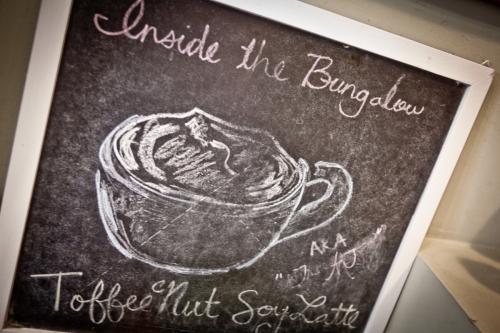 Inside the Bungalow
AKA
Toffee Nut Soy Latte